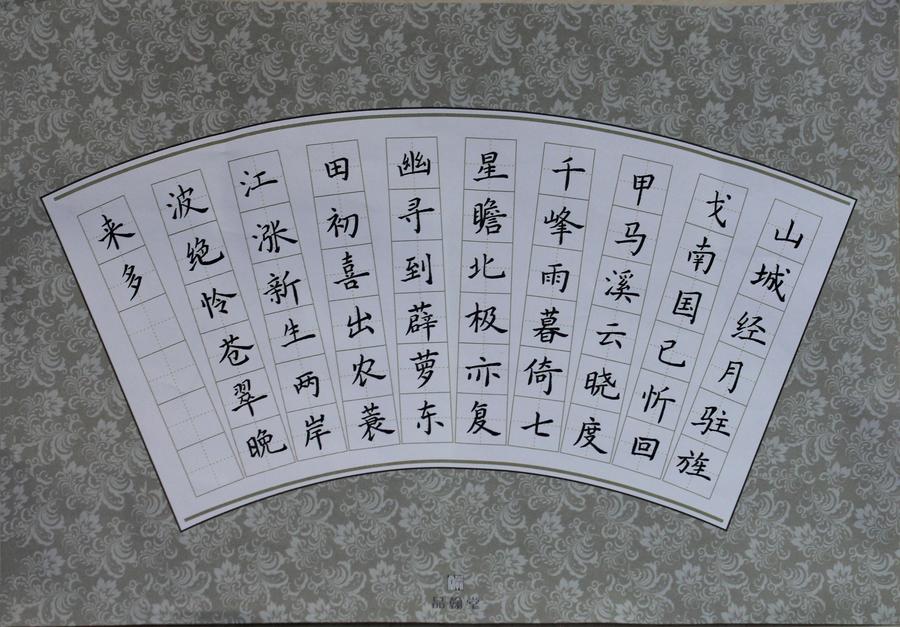 山城经月驻旌
戈南国已忻回
甲马溪云晓度
千峰雨暮倚七
星瞻北极亦复
幽寻到薜萝东
田初喜出农蓑
江涨新生两岸
波绝怜苍翠晚
来多
品翰堂